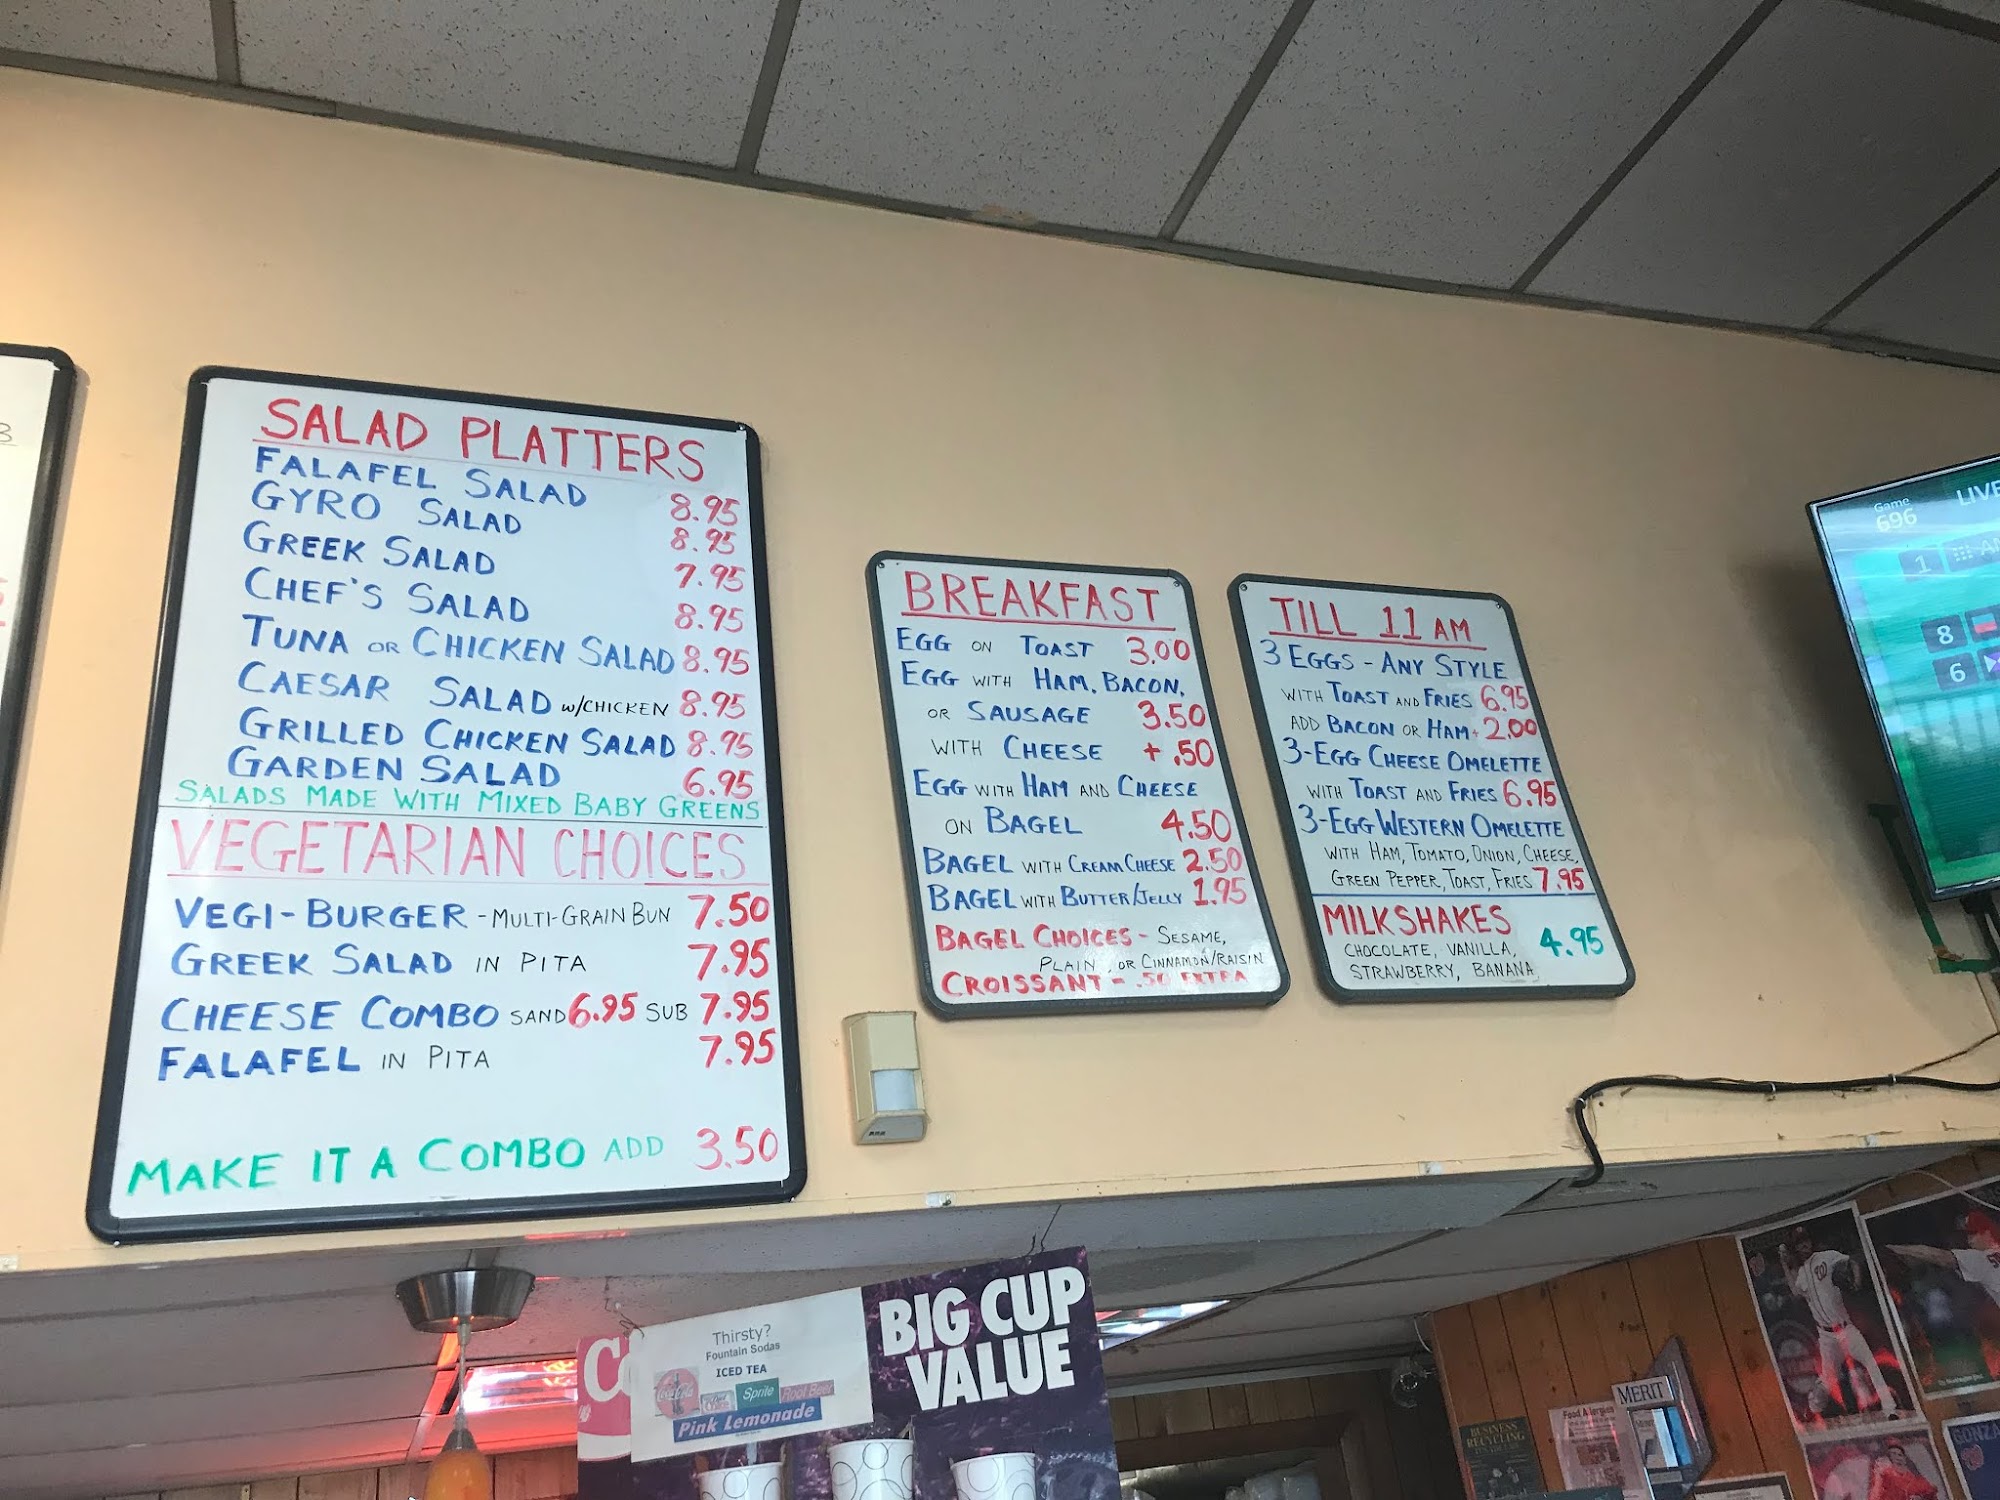 SALAD PLATTERS
FALAFEL SALAD 8.95
GYRO SALAD 8.95
GREEK SALAD 7.95
CHEF'S SALAD 8.95
TUNA OR CHICKEN SALAD 8.95
CAESAR SALAD W/CHICKEN 8.95
GRILLED CHICKEN SALAD 8.95
GARDEN SALAD 6.95
SALADS MADE WITH MIXED BABY GREENS
VEGETARIAN CHOICES
VEGI-BURGER - MULTI-GRAIN BUN 7.50
GREEK SALAD IN PITA 7.95
CHEESE COMBO SAND 6.95 SUB 7.95
FALAFEL IN PITA 7.95
MAKE IT A COMBO ADD 3.50
BREAKFAST
EGG ON TOAST 3.00
EGG WITH HAM, BACON,
OR SAUSAGE 3.50
WITH CHEESE + .50
EGG WITH HAM AND CHEESE
ON BAGEL 4.50
BAGEL WITH CREAM CHEESE 2.50
BAGEL WITH BUTTER/JELLY 1.95
BAGEL CHOICES - SESAME,
PLAIN, OR CINNAMON/RAISIN
CROISSANT - .50 EXTRA
TILL 11 AM
3 EGGS - ANY STYLE
WITH TOAST AND FRIES 6.95
ADD BACON OR HAM + 2.00
3-EGG CHEESE OMELETTE
WITH TOAST AND FRIES 6.95
3-EGG WESTERN OMELETTE
WITH HAM, TOMATO, ONION, CHEESE,
GREEN PEPPER, TOAST, FRIES 7.95
MILKSHAKES 4.95
CHOCOLATE, VANILLA,
STRAWBERRY, BANANA
Game
696
LIVE
1
8
6
Thirsty?
Fountain Sodas
ICED TEA
Coca-Cola
Sprite
Root Beer
Pink Lemonade
BIG CUP
VALUE
MERIT
BUSINESS
RECYCLING